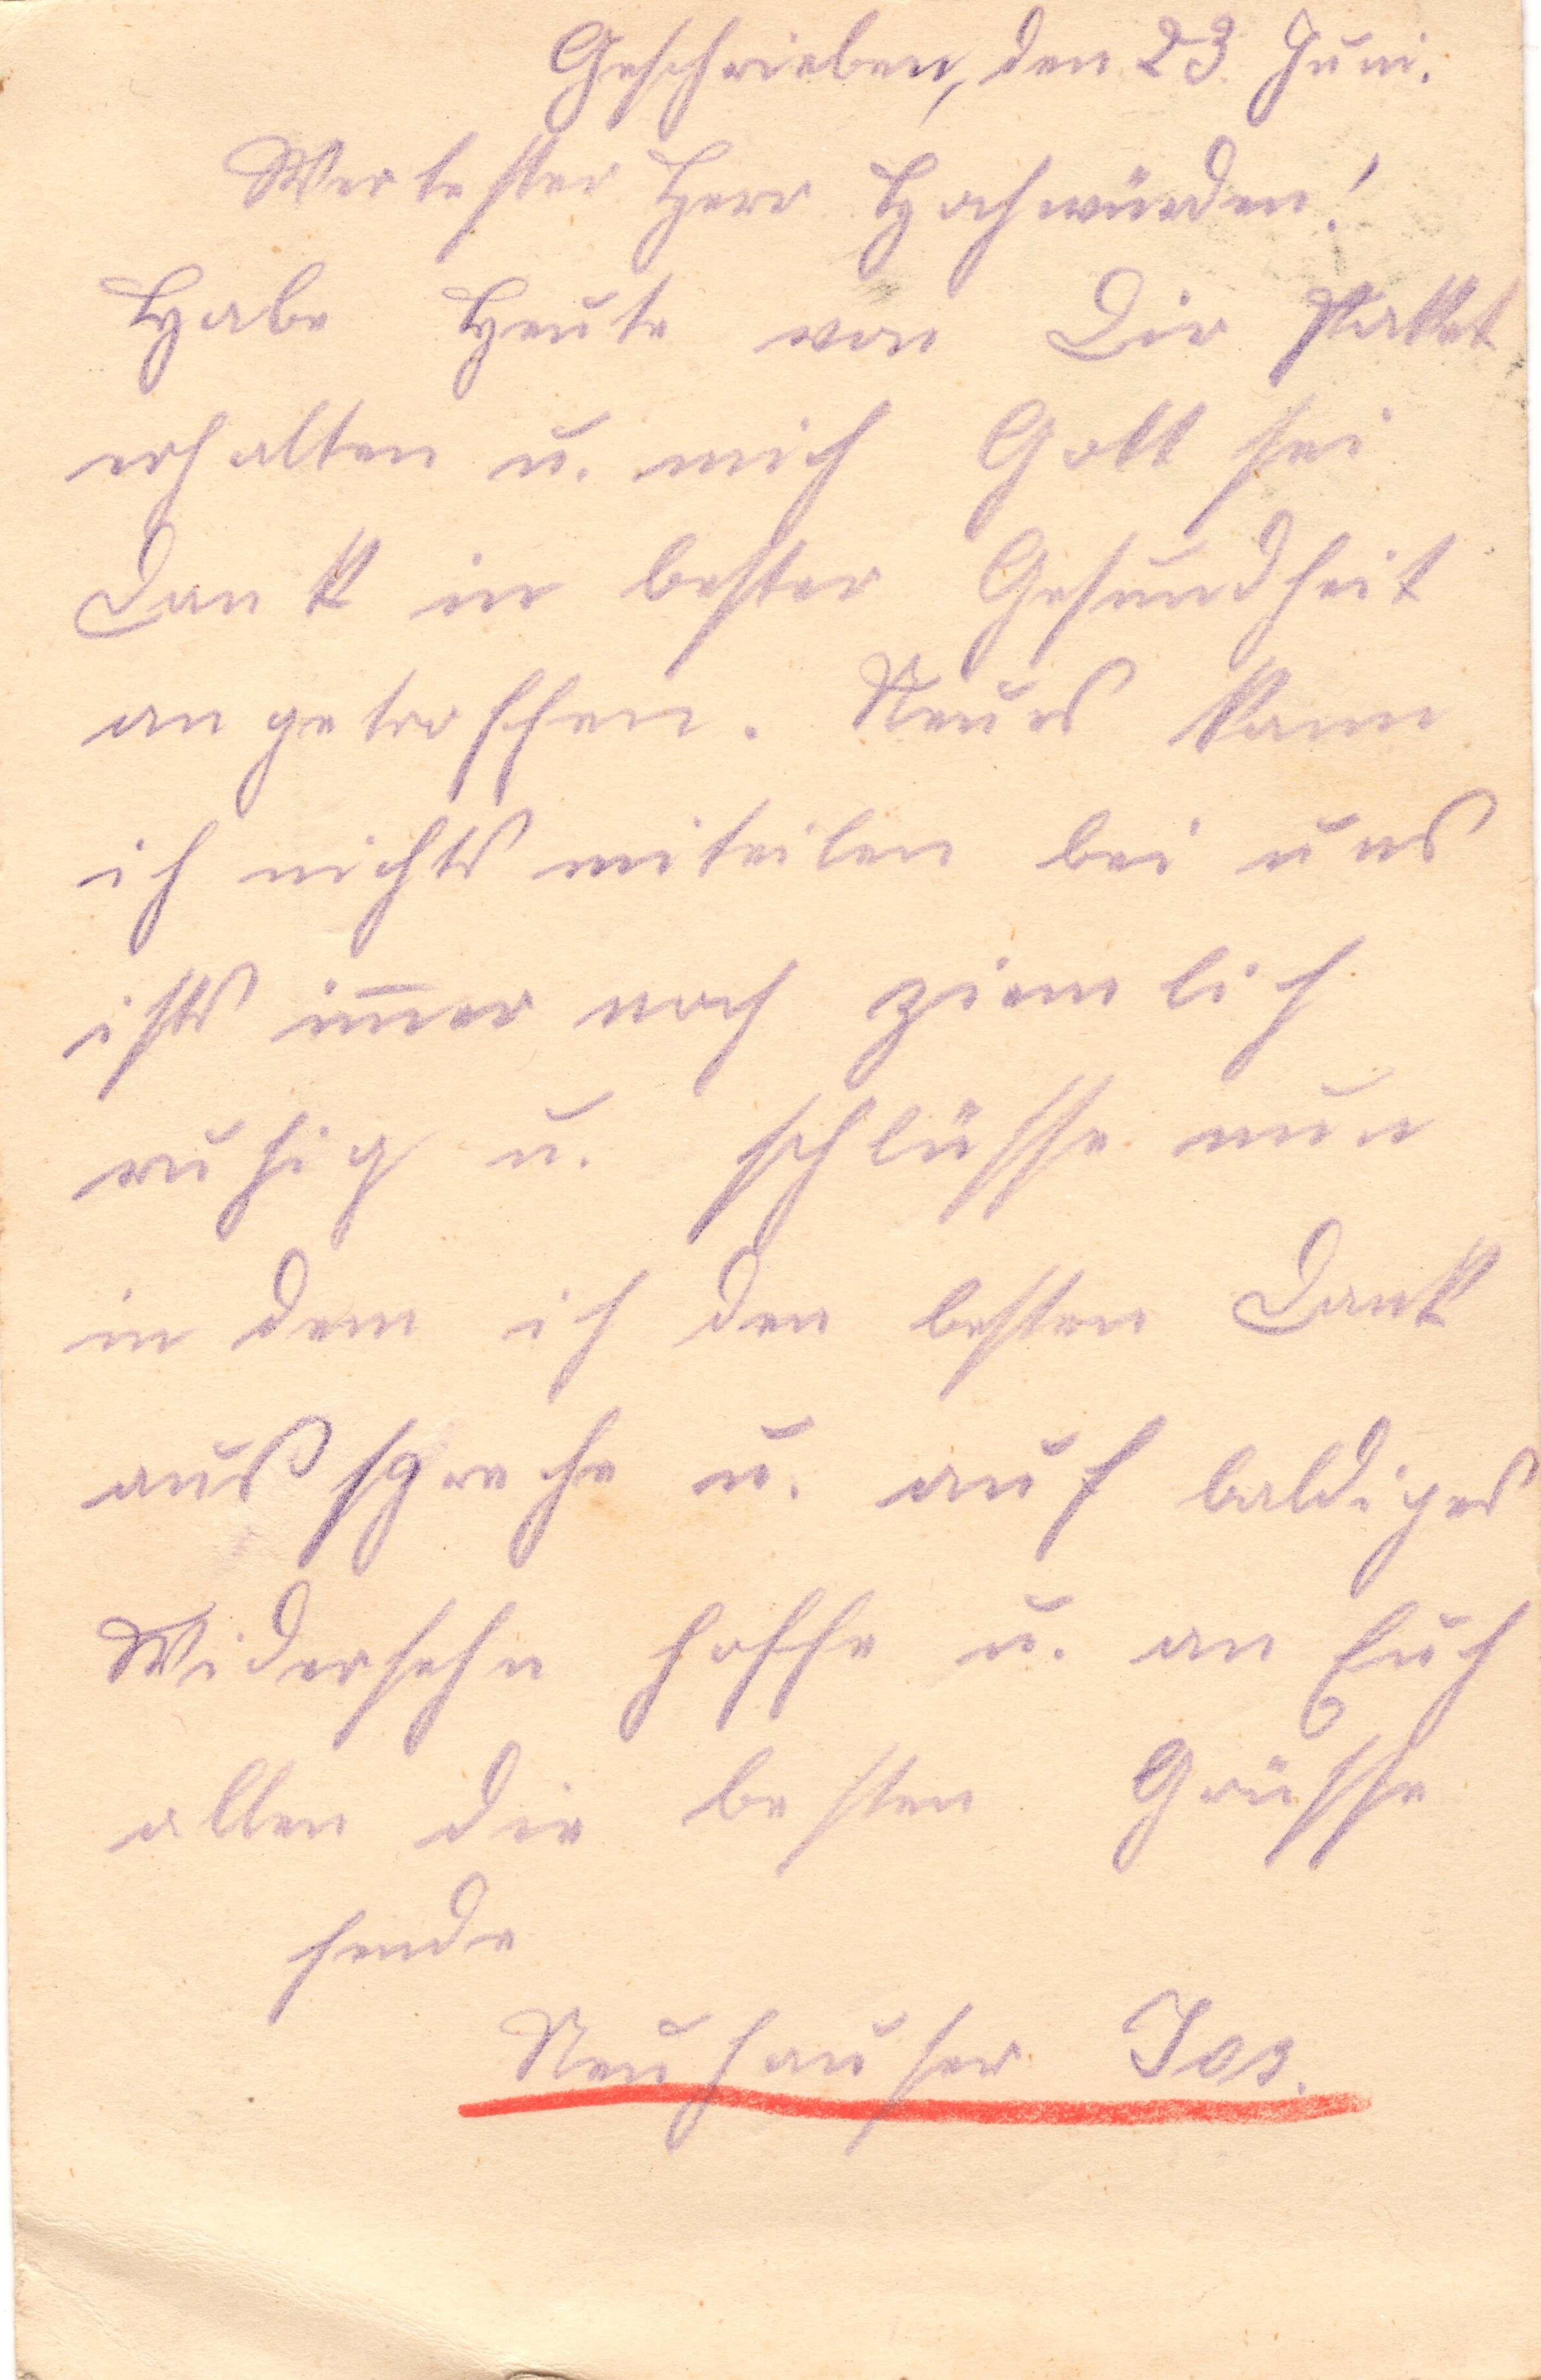 Geschrieben, den 23. Juni.
Wertester Herr Hochwürden!
Habe Heute von Dir Pakket
erhalten u. mich Gott sei
Dank in bester Gesundheit
angetroffen. Neues kann
ich nichts miteilen bei uns
ists im̅er noch ziemlich
ruhig u. schlüsse nun
in dem ich den besten Dank
ausspreche u. auf baldiges
Widersehn hoffe u. an Euch
allen die besten Grüsse
sende
Neuhauser Jos.